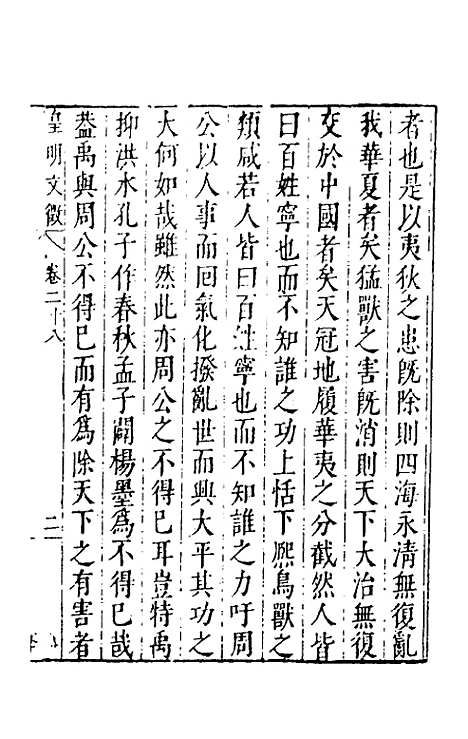 者也是以夷狄之患旣除則四海永淸無復亂
我華夏者矣猛獸之害旣消則天下大治無復
交於中國者矣天冠地履華夷之分截然人皆
曰百姓寧也而不知誰之功上恬下熈鳥獸之
類咸若人皆曰百姓寧也而不知誰之力吁周
公以人事而囘氣化撥亂世而興大平其功之
大何如哉雖然此亦周公之不得已耳豈特禹
抑洪水孔子作春秋孟子闢楊墨爲不得已哉
葢禹與周公不得已而有爲除天下之有害者
皇明文徵 卷二十八 二